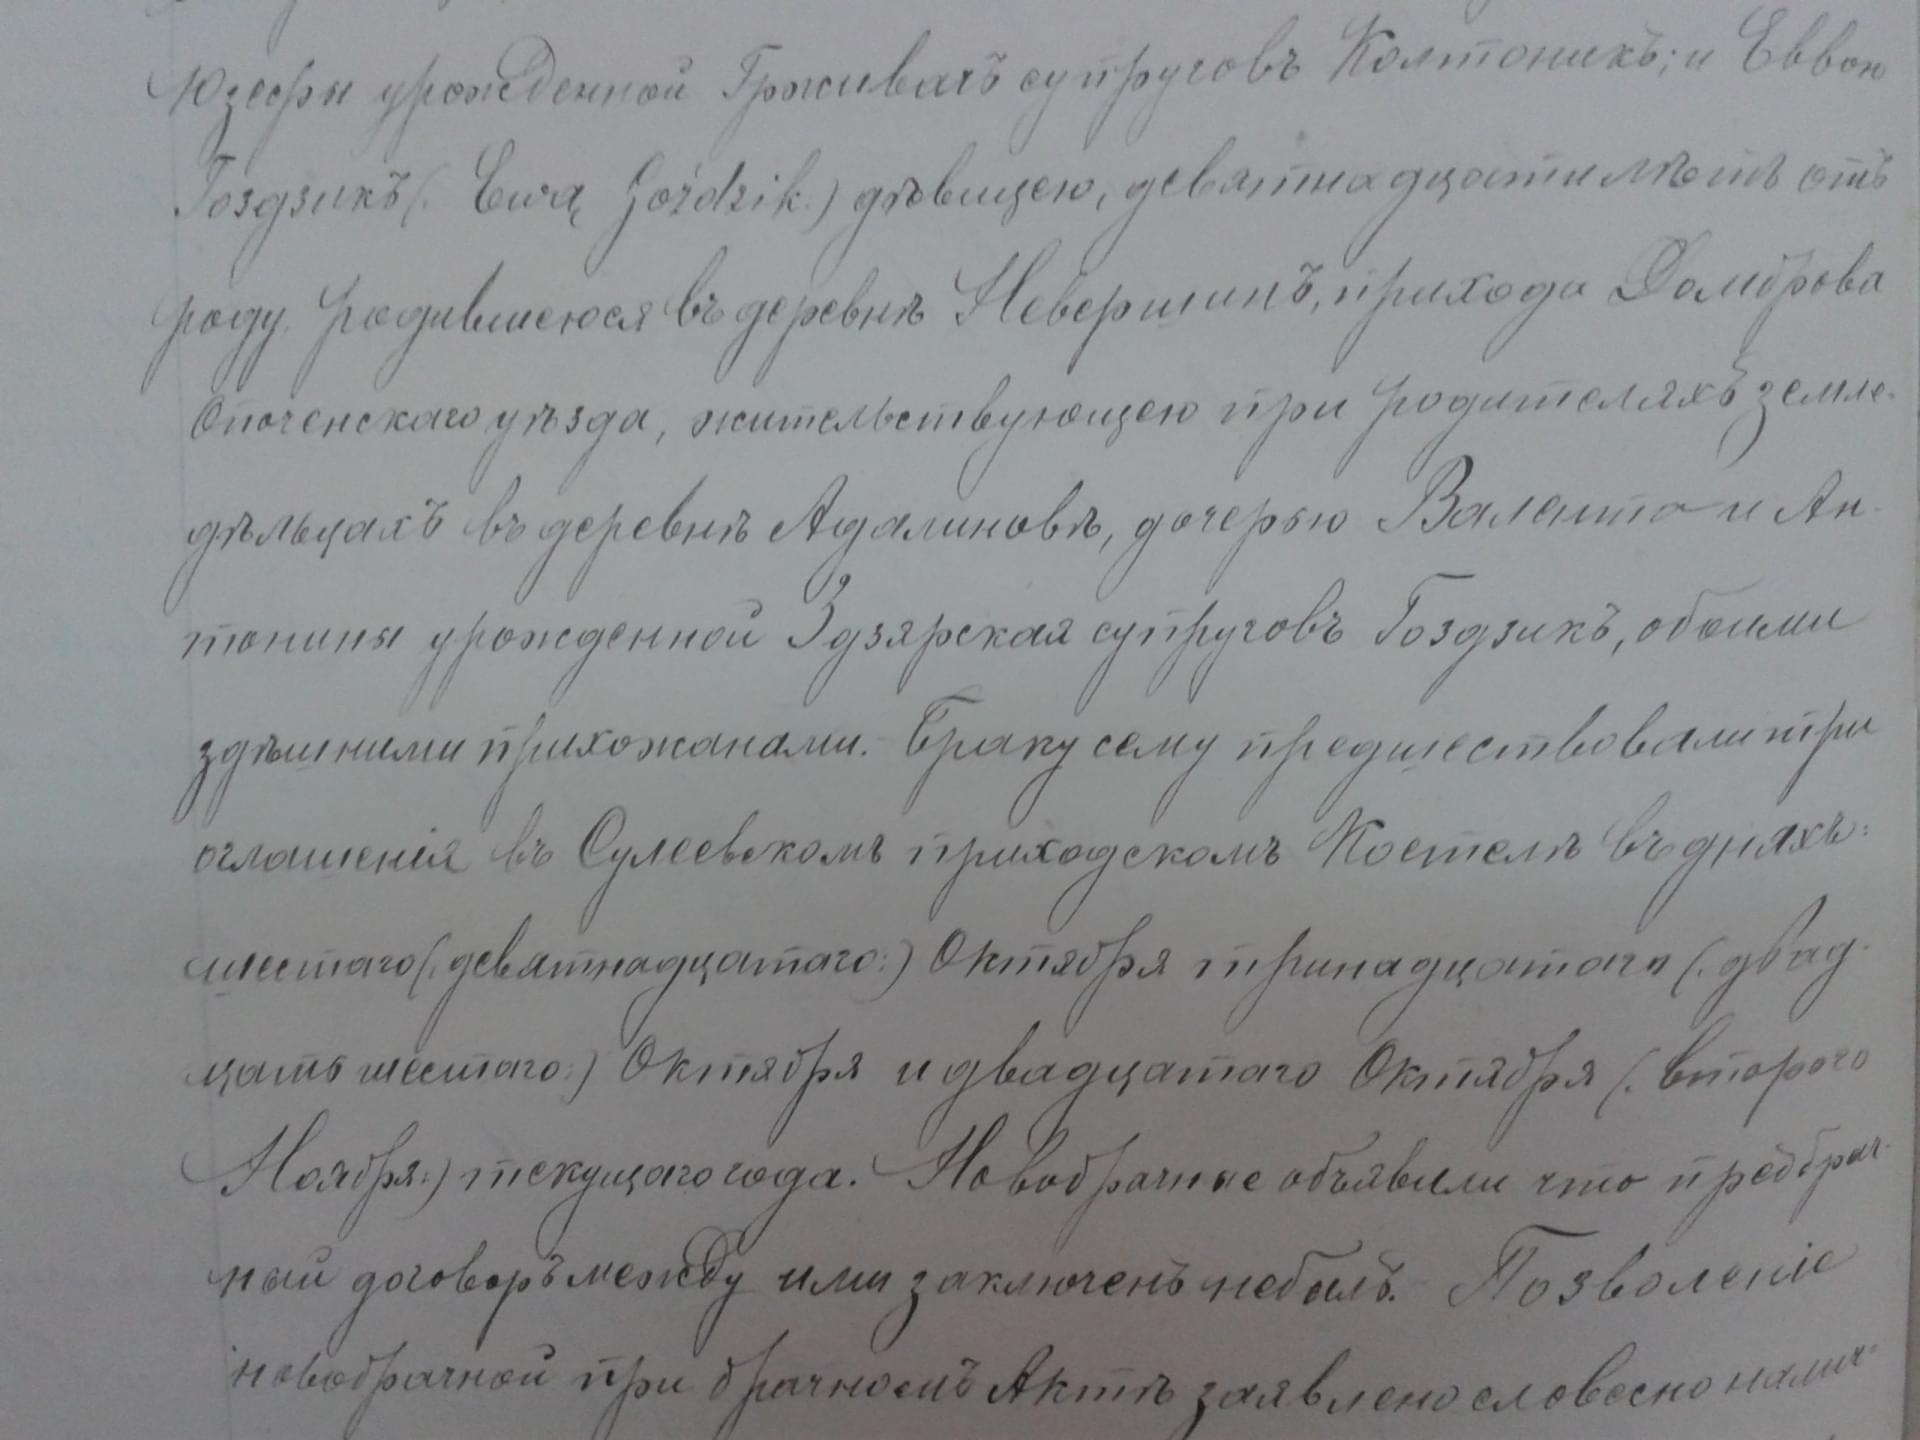 Юзефы урожденной Грживачъ супруговъ Колтоникъ; и Еввою
Гоздзикъ (: Ewą Goździk :) дѣвицею, девятнадцати лѣтъ отъ
роду, родившеюся въ деревнѣ Невершинъ, прихода Домброва
Опоченскаго уѣзда, жительствующею при родителяхъ земле-
дѣльцахъ въ деревнѣ Адалиновѣ, дочерью Валента и Ан-
тонины урожденной Здзярская супруговъ Гоздзикъ, обоими
здѣшними прихожанами. - Браку сему предшествовали три
оглашенія въ Сулеевскомъ приходскомъ Костелѣ въ дняхъ:
шестаго (: девятнадцатаго :) Октября тринадцатаго (: двад-
цать шестаго :) Октября и двадцатаго Октября (: втораго
Ноября :) текущаго года. Новобрачные объявили что предбрач-
ный договоръ между ими заключенъ небылъ. - Позволеніе
новобрачной при брачномъ Актѣ заявлено словесно налич-